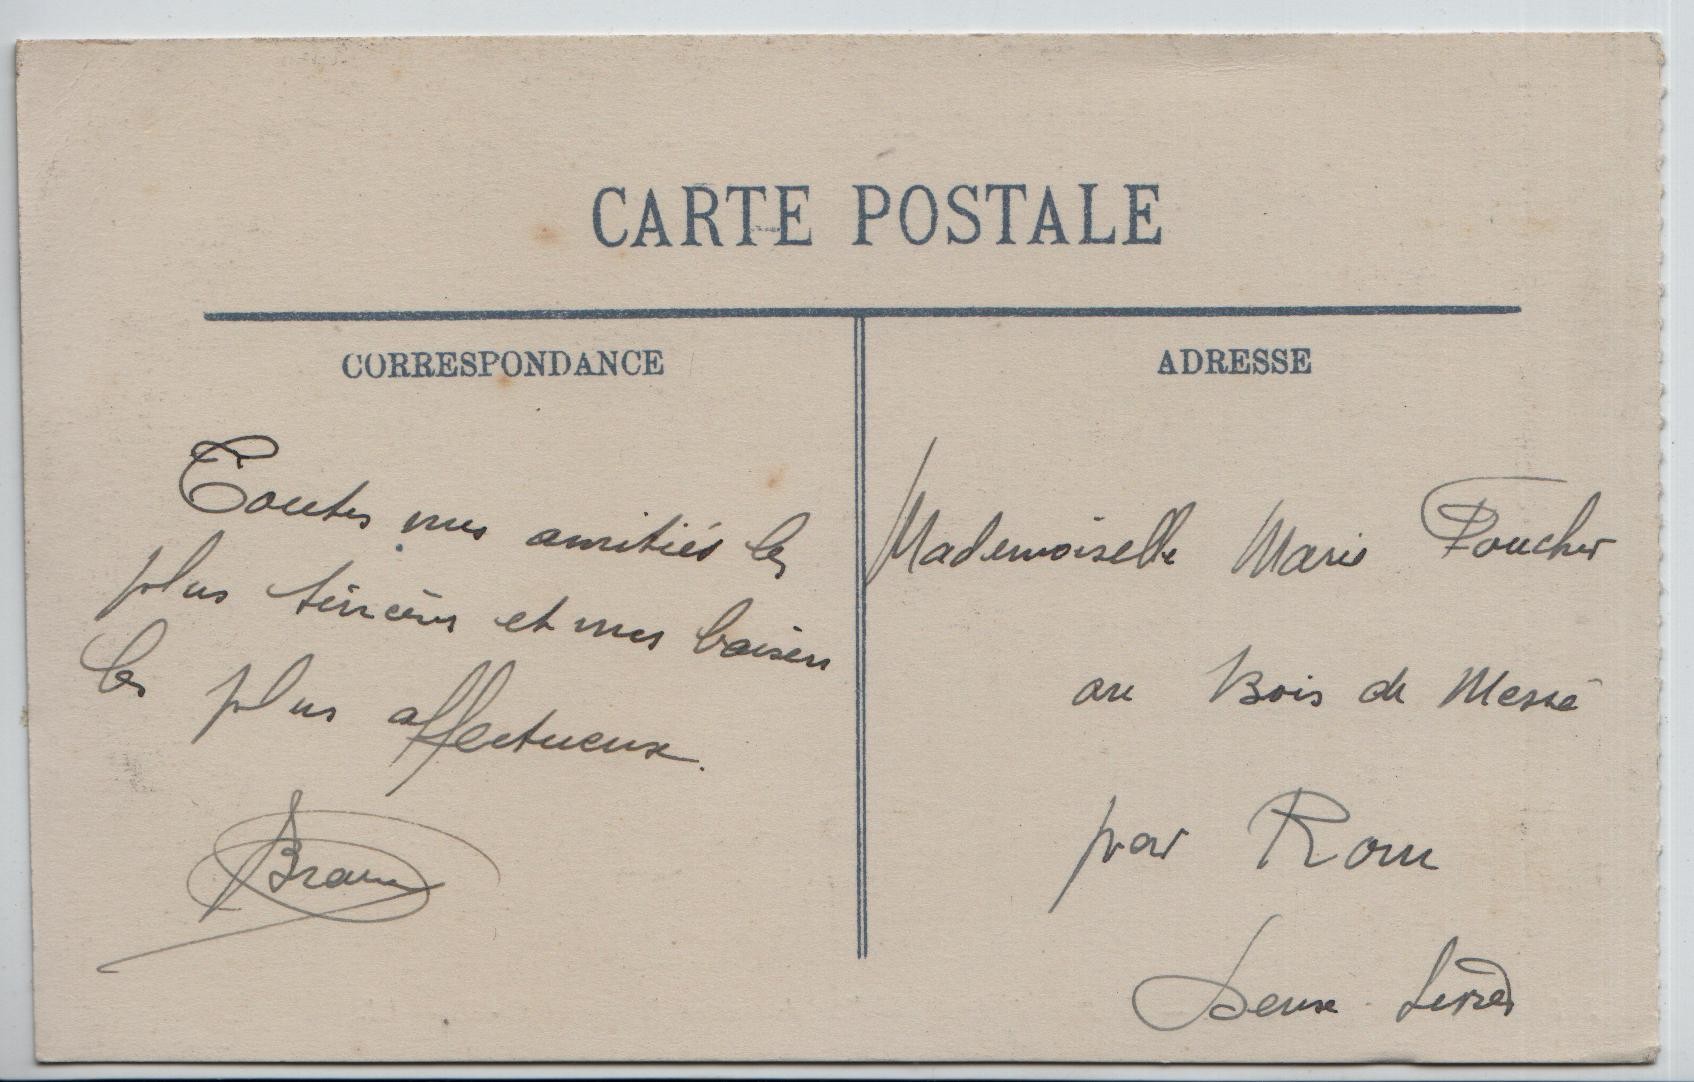 CARTE POSTALE
CORRESPONDANCE
Toutes mes amitiés les
plus sincères et mes baisers
les plus affectueux.
Braun
ADRESSE
Mademoiselle Marie Foucher
au Bois de Messé
par Rom
Deux-Sèvres